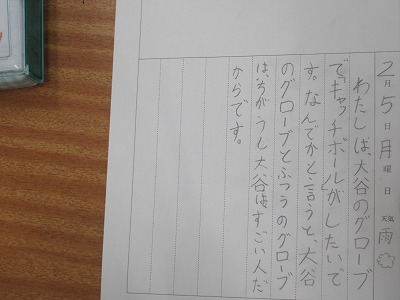 2月5日月曜日 天気 雨
わたしは、大谷のグローブ
で「キャッチボール」がしたいで
す。なんでかと言うと、大谷
のグローブとふつうのグローブ
は、ちがうし大谷は、すごい人だ
からです。